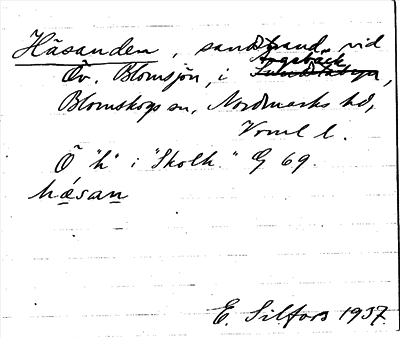 Häsanden, sandstrand vid
Öv. Blomsjön, i Ängebäck,
Blomskogs sn, Nordmarks hd,
Vrml l.
Ö "h" i "Skolh." G 69.
hä́san
E. Silfors 1937.